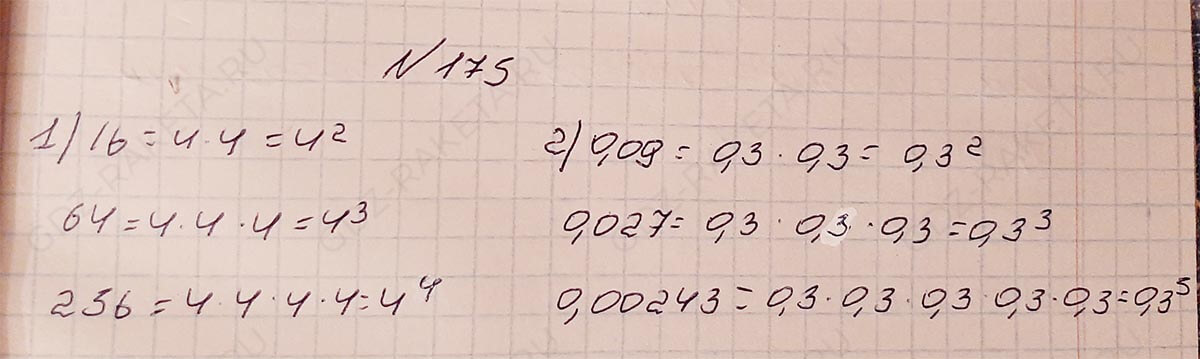 N 175
1) 16 = 4 · 4 = 4²
64 = 4 · 4 · 4 = 4³
256 = 4 · 4 · 4 · 4 = 4⁴
2) 0,09 = 0,3 · 0,3 = 0,3²
0,027 = 0,3 · 0,3 · 0,3 = 0,3³
0,00243 = 0,3 · 0,3 · 0,3 0,3 · 0,3 = 0,3⁵
GDZ-RAKETA.RU